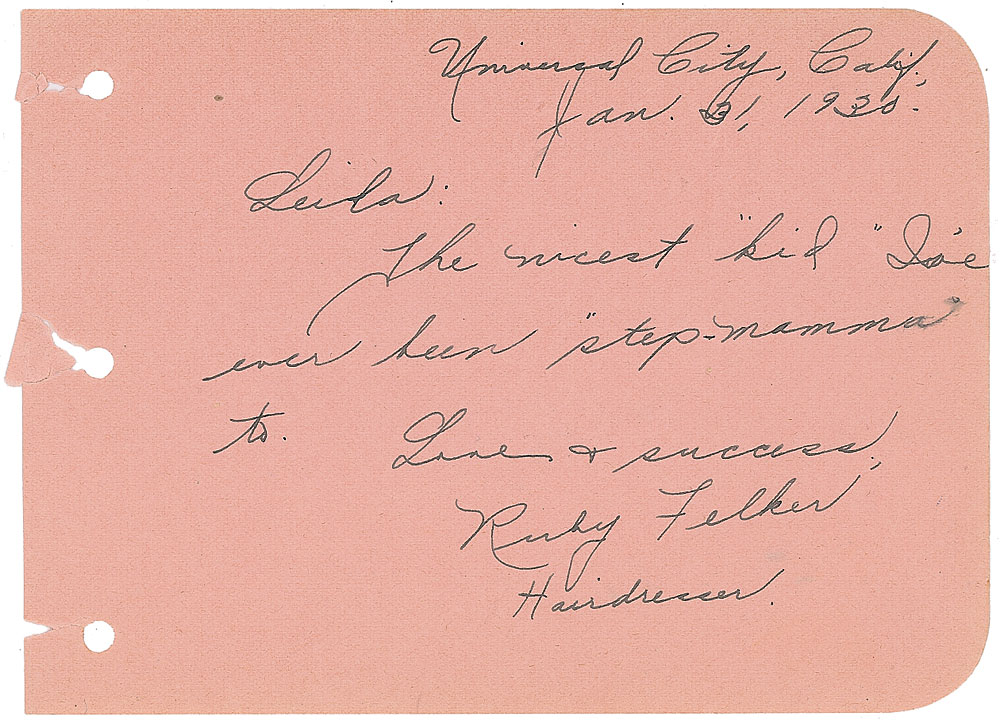 Universal City, Calif.,
Jan. 31, 1930.
Leila:
The nicest "kid" I've
ever been "step-mamma"
to.
Love & success,
Ruby Felker
Hairdresser.